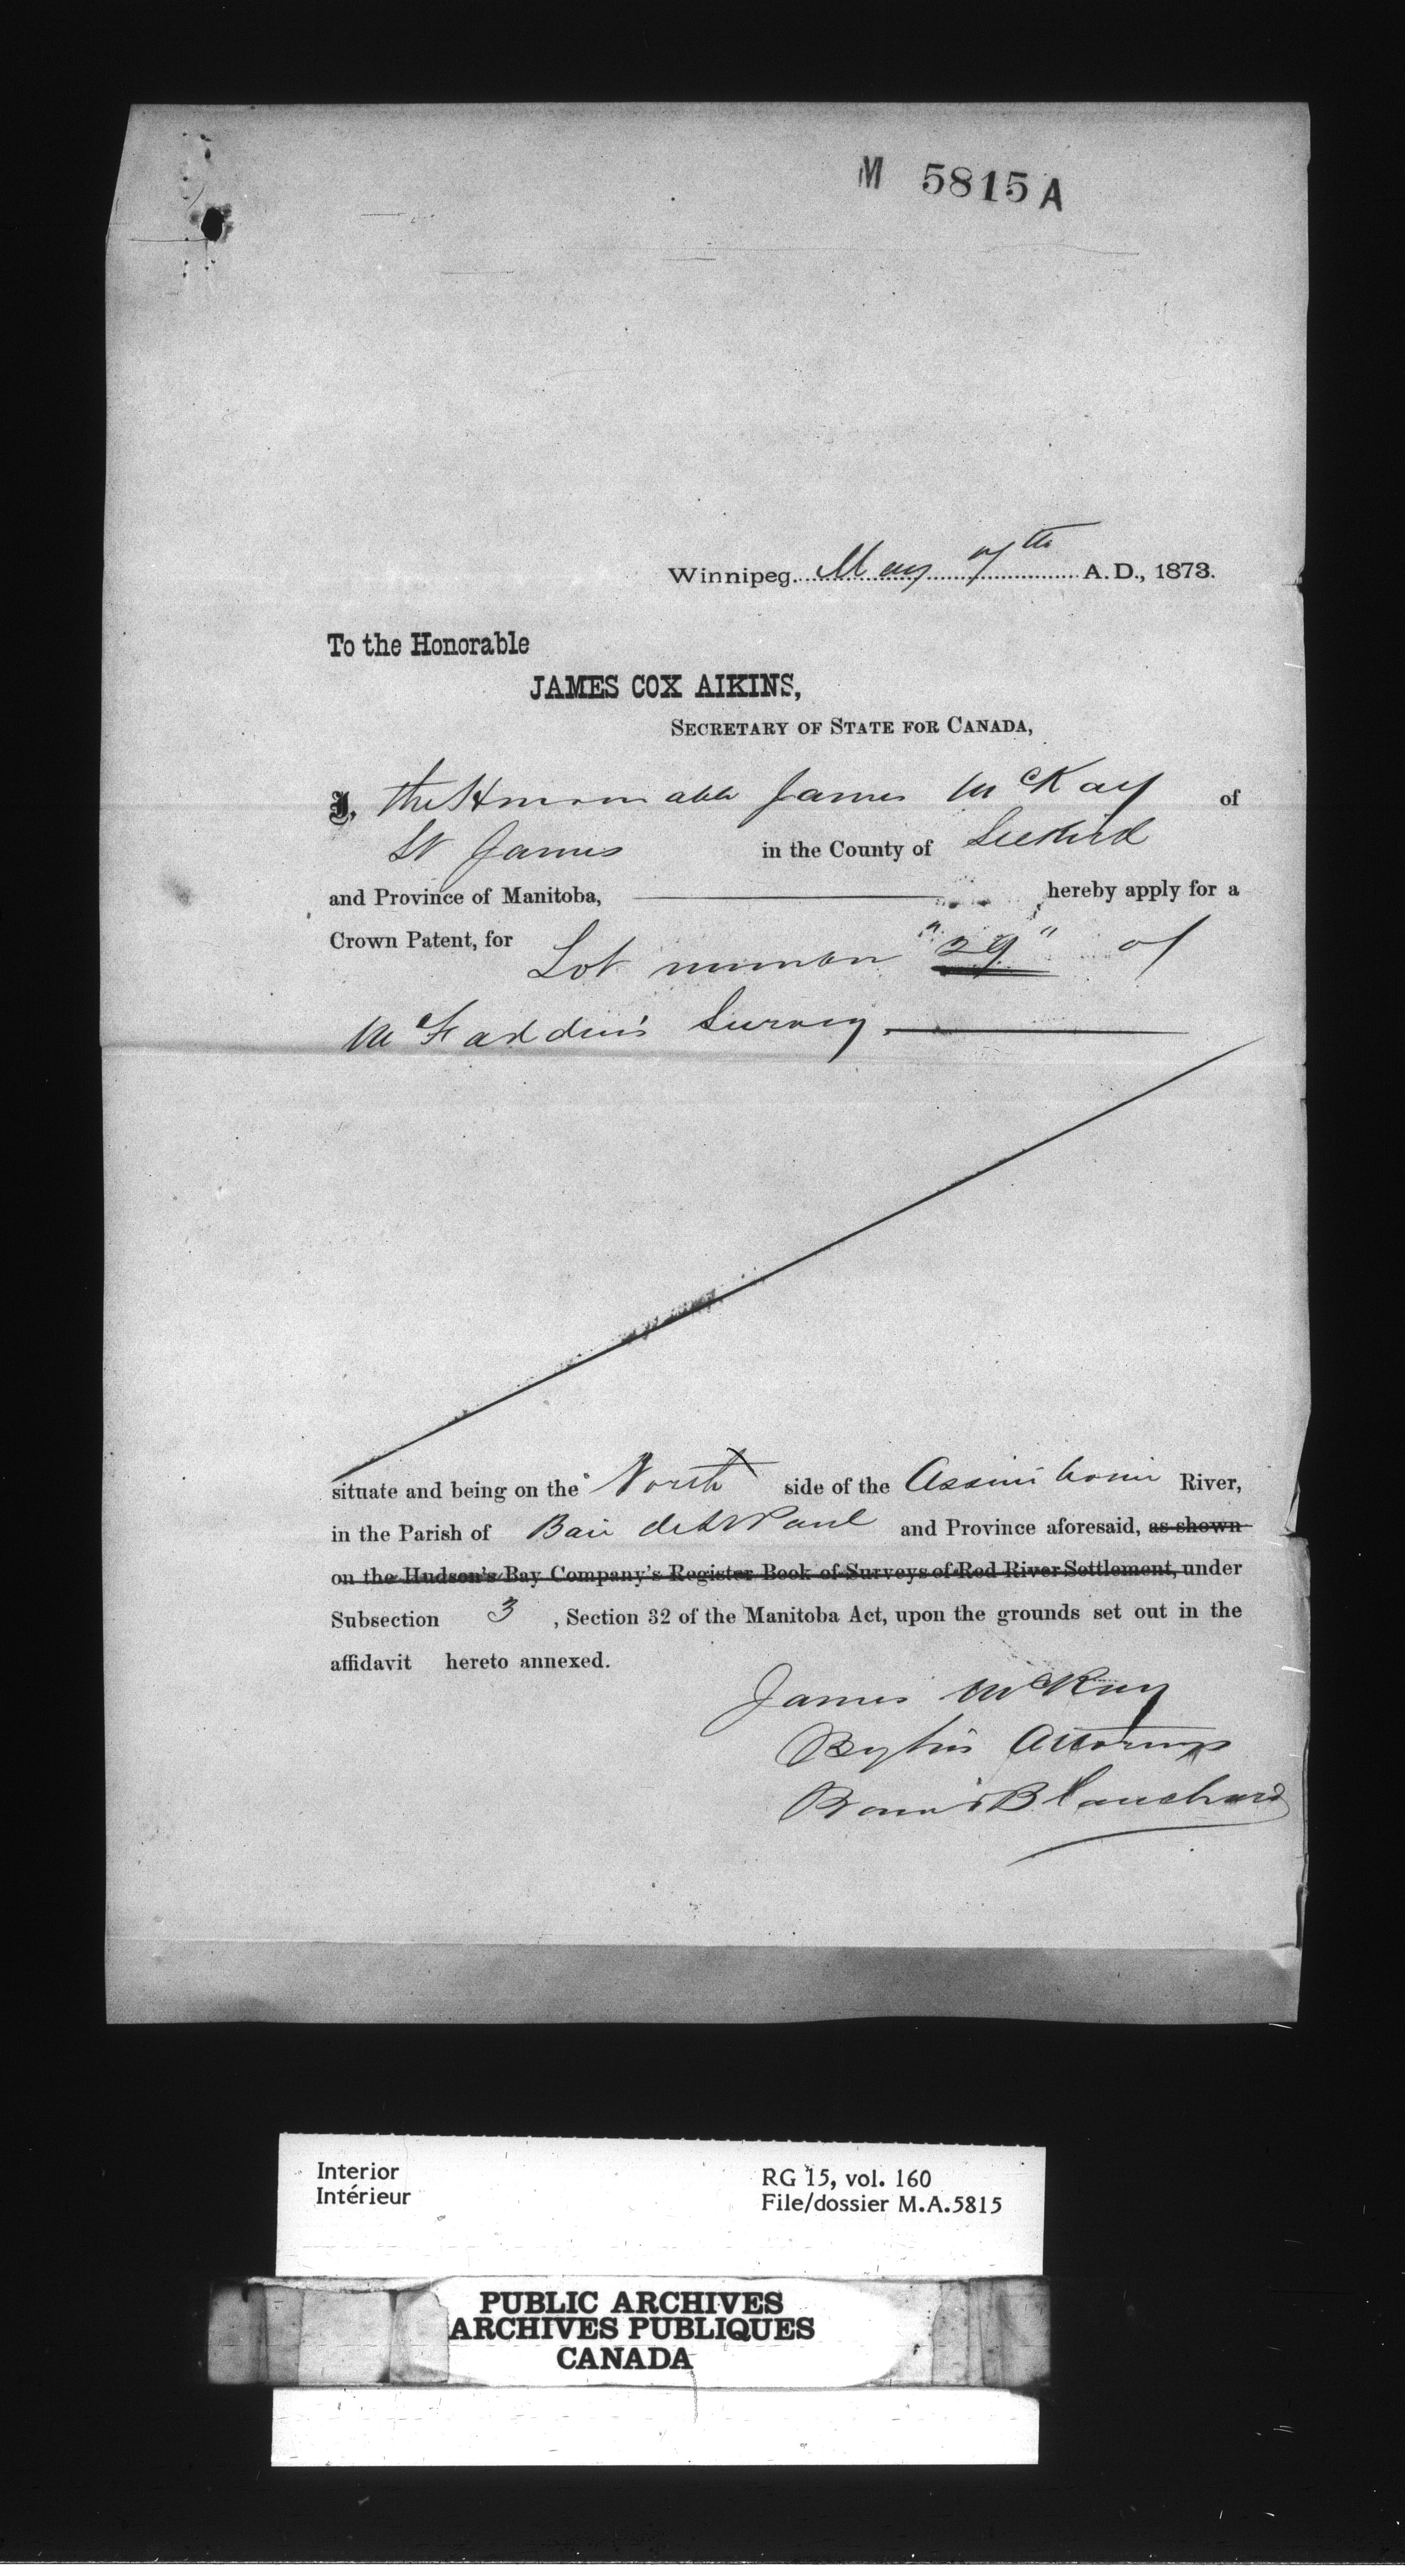 M 5815 A
Winnipeg May 7th A.D., 1873.
To the Honorable
JAMES COX AIKINS,
SECRETARY OF STATE FOR CANADA,
I, the Honorable James McKay of
St James in the County of Selkirk
and Province of Manitoba, hereby apply for a
Crown Patent, for Lot number "29" of
McFadden's Survey.
situate and being on the North side of the Assiniboine River,
in the Parish of Baie de St Paul and Province aforesaid, as shown
on the Hudson's Bay Company's Register Book of Surveys of Red River Settlement, under
Subsection 3, Section 32 of the Manitoba Act, upon the grounds set out in the
affidavit hereto annexed.
James McKay
By his Attorney
Blanchard
Interior
Intérieur
RG 15, vol. 160
File/dossier M.A.5815
PUBLIC ARCHIVES
ARCHIVES PUBLIQUES
CANADA